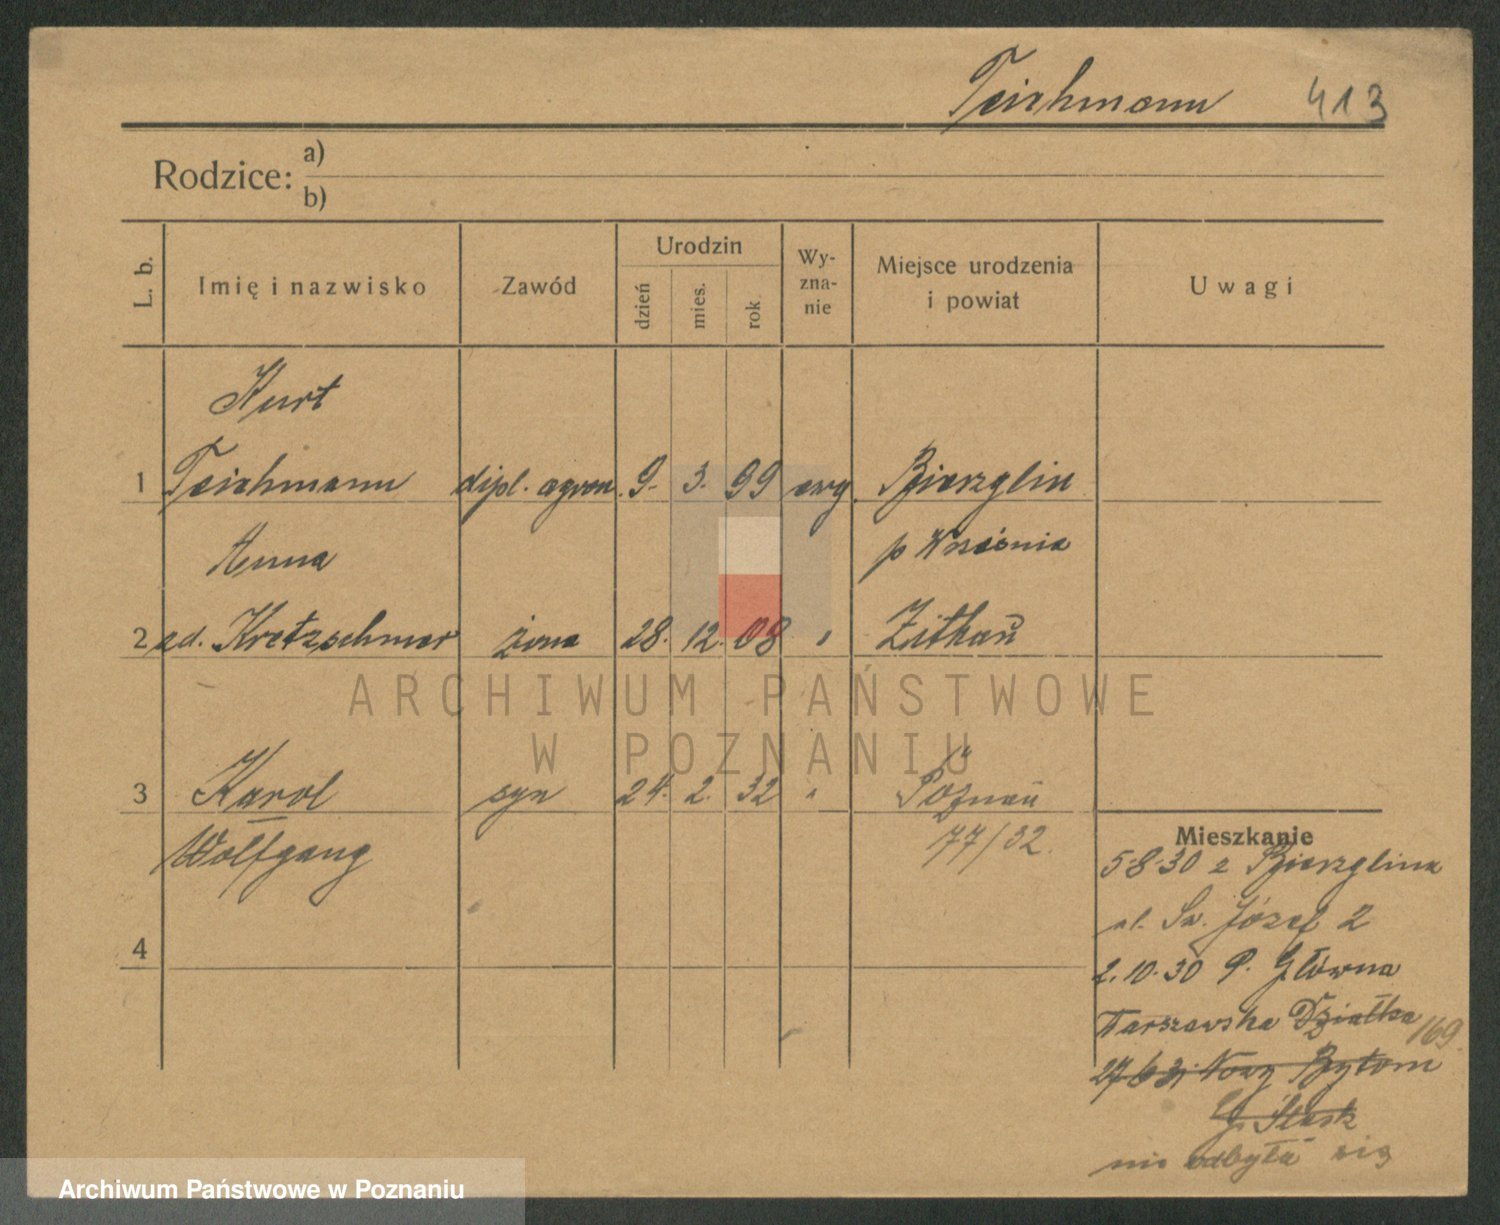 Teichmann 413
Rodzice: a)
b)
L. b. Imię i nazwisko Zawód Urodzin dzień mies. rok Wy-zna-nie Miejsce urodzenia i powiat Uwagi
Kurt
1 Teichmann dipl. agron. 9. 3. 99 ewg. Bierzglin
Anna p Września
2 zd. Kretzschmar żona 28. 12. 08 " Zithau
ARCHIWUM PAŃSTWOWE
W POZNANIU
3 Karol syn 24. 2. 32 " Poznań
Wolfgang 77/32.
Mieszkanie
5-8-30 z Bierzglina
ul. Św. Józef 2
4
2.10.30 P. Główna
Warszawska Działka 169
27/6 31 Nowy Bytom
G. Śląsk
nie odbyła się
Archiwum Państwowe w Poznaniu